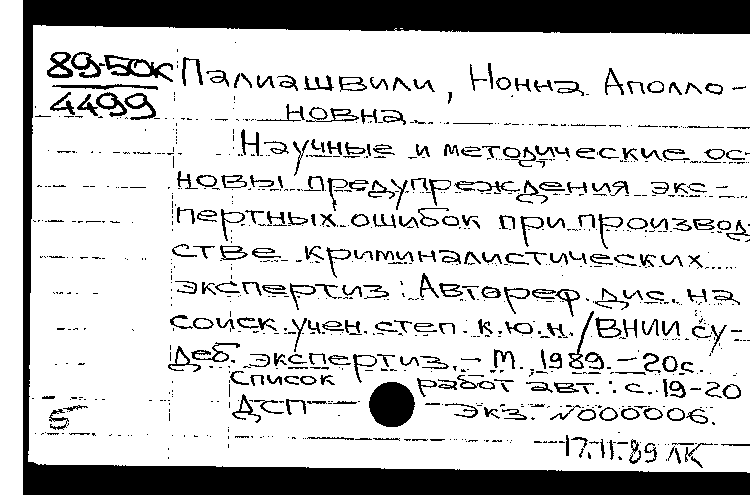 89-50к
4499
Палиашвили, Нонна Аполло-
новна.
Научные и методические ос-
новы предупреждения экс-
пертных ошибок при производ-
стве криминалистических
экспертиз: Автореф. дис. на
соиск. учен. степ. к.ю.н. / ВНИИ су-
деб. экспертиз. - М., 1989. - 20с.
Список работ авт.: с. 19-20
ДСП - экз. №000006.
5
17.11.89 ЛК